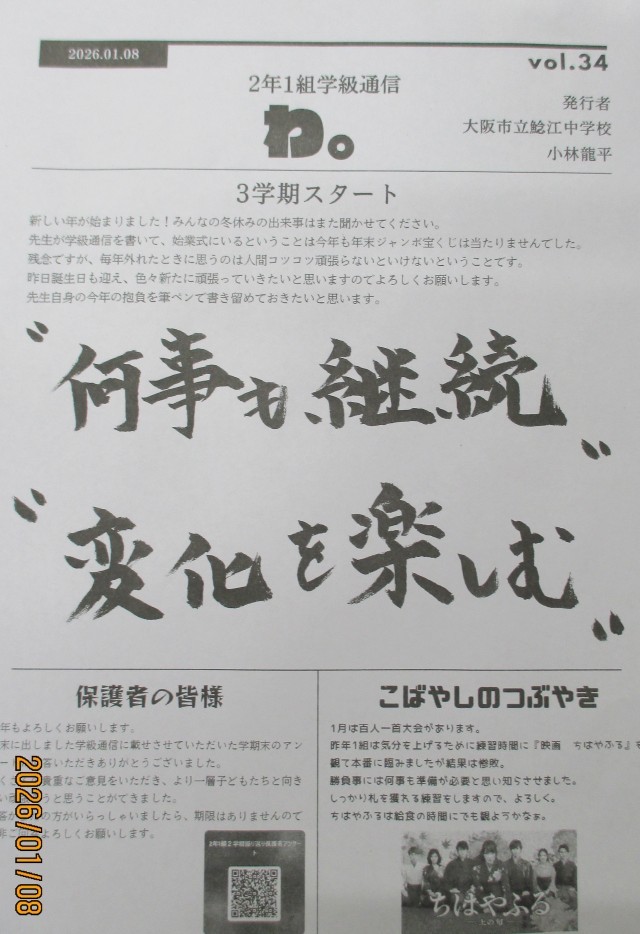 2026.01.08
vol.34
2年1組学級通信
わ。
発行者
大阪市立鯰江中学校
小林龍平
3学期スタート
新しい年が始まりました！みんなの冬休みの出来事はまた聞かせてください。
先生が学級通信を書いて、始業式にいるということは今年も年末ジャンボ宝くじは当たりませんでした。
残念ですが、毎年外れたときに思うのは人間コツコツ頑張らないといけないということです。
昨日誕生日も迎え、色々新たに頑張っていきたいと思いますのでよろしくお願いします。
先生自身の今年の抱負を筆ペンで書き留めておきたいと思います。
"何事も継続"
"変化を楽しむ"
保護者の皆様
年もよろしくお願いします。
末に出しました学級通信に載せさせていただいた学期末のアン
答いただきありがとうございました。
貴重なご意見をいただき、より一層子どもたちと向き
うと思うことができました。
の方がいらっしゃいましたら、期限はありませんので
よろしくお願いします。
こばやしのつぶやき
1月は百人一首大会があります。
昨年1組は気分を上げるために練習時間に『映画 ちはやふる』を
観て本番に臨みましたが結果は惨敗。
勝負事には何事も準備が必要と思い知らさせました。
しっかり札を獲れる練習をしますので、よろしく。
ちはやふるは給食の時間にでも観ようかなぁ。
ちはやふる
2026/01/08